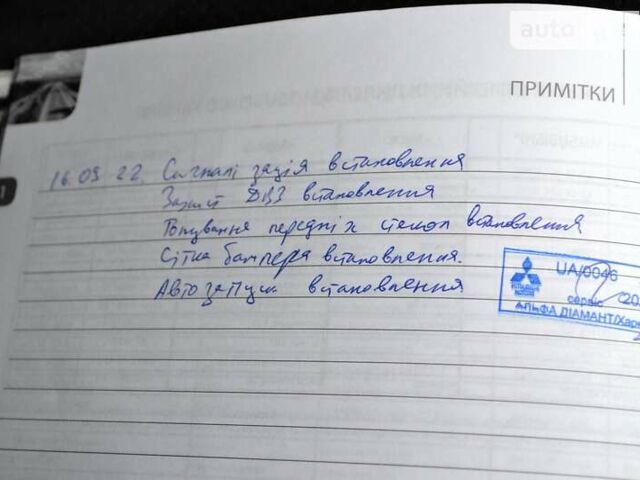 auto
ПРИМІТКИ
1
16.09.22. Сигналізація встановлення
Захист ДВЗ встановлення
Тонування передніх стекол встановлення
Сітка бампера встановлення.
Автозапуск встановлення
UA/0046
сервіс
АЛЬФА ДІАМАНТ/Харк